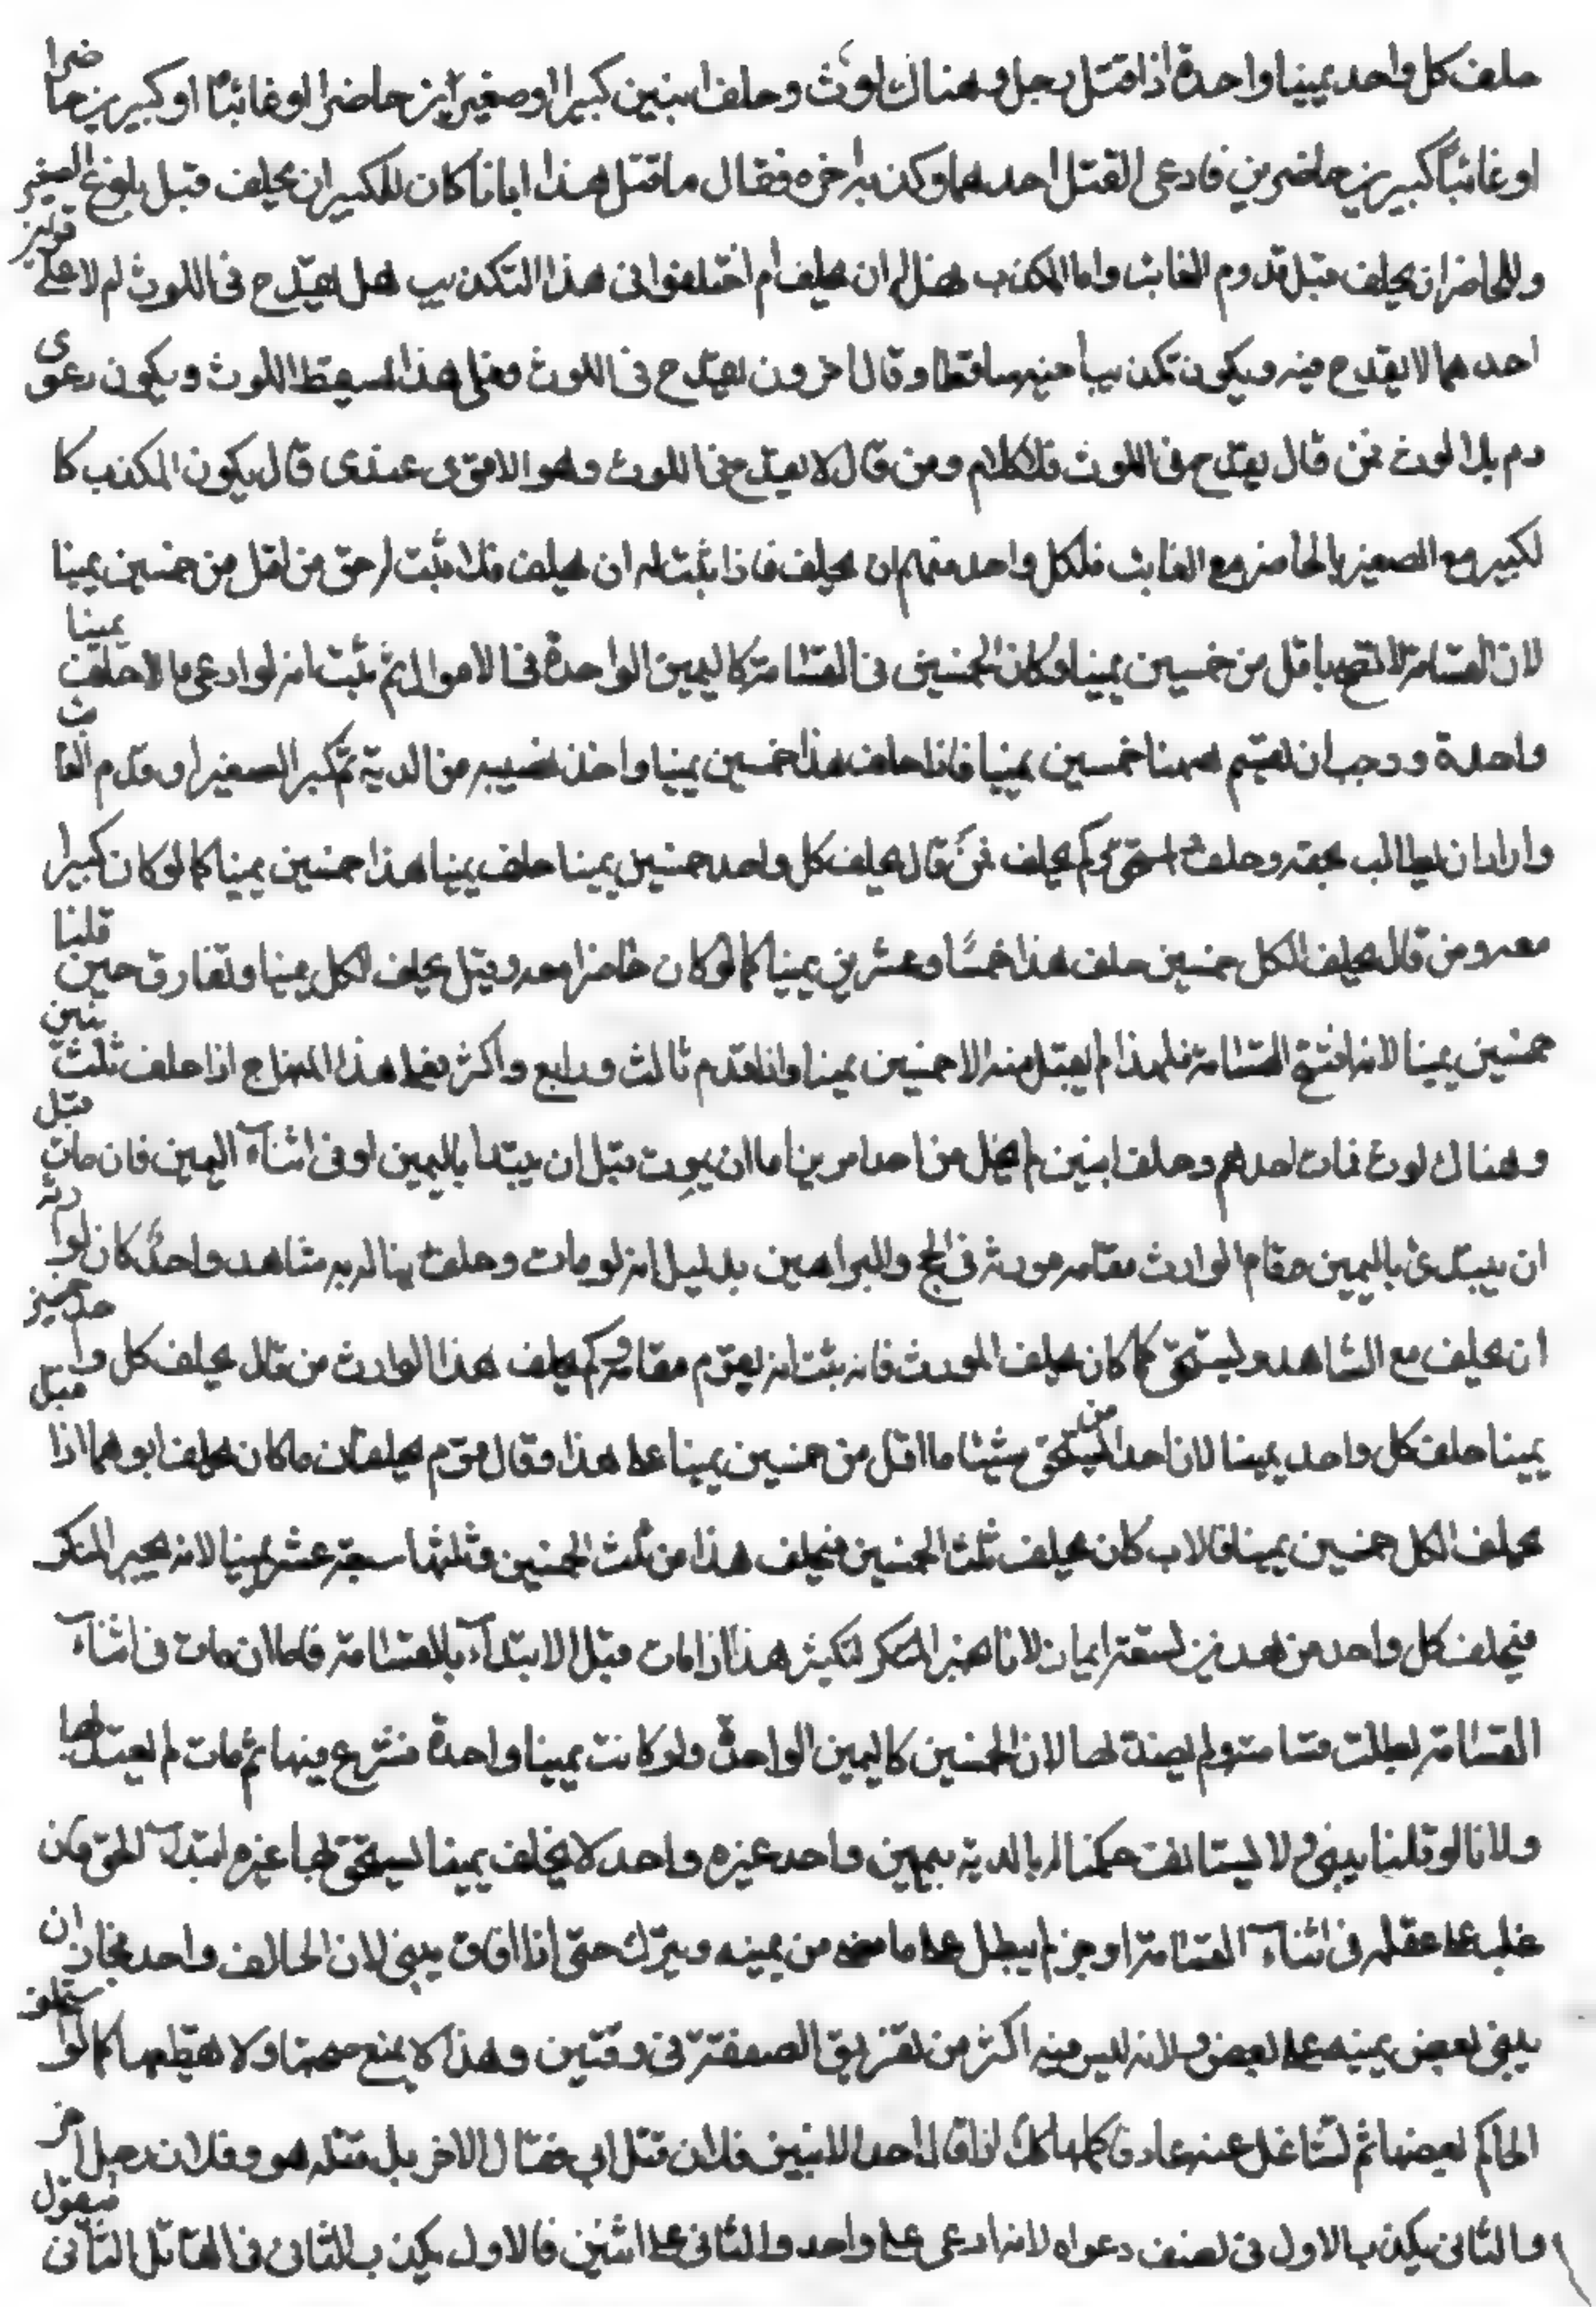 حلف كل واحد يمينا واحدة اذا قتل رجل وهناك لوث وخلف ابنين كبيرا او صغيرا بن حاضرا او غائبا او كبيرين حاضرا
او غائبا كبيرين حاضرين فادعى القتل احدهما وكذبه اخوه فقال ما قتل هذا ابانا كان للكبير ان يحلف قبل بلوغ الصغير
وللحاضر ان يحلف قبل قدوم الغايب واما المكذب فهل له ان يحلف ام اختلفوا في هذا التكذيب هل يقدح في اللوث ام لا على قولين
احدهما لا يقدح فيه ويكون تكذيب اخيه ساقطا وقال اخرون يقدح في اللوث فعلى هذا يسقط اللوث ويكون دعوى
دم بلا لوث فمن قال يقدح في اللوث فلا كلام ومن قال لا يقدح في اللوث وهو الاقوى عندى قال يكون المكذب كا
لكبير مع الصغير والحاضر مع الغايب فلكل واحد منهما ان يحلف فاذا ثبت له ان يحلف فلا يثبت له حق من اقل من خمسين يمينا
لان القسامة لا تصح باقل من خمسين يمينا وكان الخمسين في القسامة كاليمين الواحدة في الاموال ثم ثبت انه لو ادعى مالا حلف يمينا
واحدة ووجب ان يقسم ههنا خمسين يمينا فاذا حلف هذا خمسين يمينا واخذ نصيبه من الدية ثم كبر الصغير او قدم الغايب
واراد ان يطالب بحقه وحلف استحق وكم يحلف فمن قال يحلف كل واحد خمسين يمينا حلف يمينا هذا خمسين يمينا كما لو كان كبيرا
معه ومن قال يحلف الكل خمسين حلف هذا خمسا وعشرين يمينا كما لو كان حاضرا معه وقيل يحلف لكل يمينا وتفارق حين قلنا
خمسين يمينا لانه افتتح القسامة فلهذا لم يقبل منه الا خمسين يمينا واذا قدم ثالث ورابع واكثر فعلى هذا المنهاج اذا حلف ثلث بنين
وهناك لوث فمات احدهم وخلف ابنين لم يخل من احد امرين اما ان يموت قبل ان يبتدا باليمين او في اثناء اليمين فان مات قبل
ان يبتدئ باليمين قام الوارث مقامه مورثه في الحج والبراهين بدليل انه لو مات وخلف دينا له به شاهد واحد كان لوارثه
ان يحلف مع الشاهد وليستحق كما كان يحلف المورث فانه ثبت انه يقوم مقامه وكم يحلف هذا الوارث من قال يحلف كل واحد خمسين
يمينا حلف كل واحد يمينا لان احدا من يستحق شيئا ما اقل من خمسين يمينا على هذا وقال قوم يحلفان ما كان يحلف ابوهما اذا قيل
يحلف الكل خمسين يمينا فالاب كان يحلف ثلث الخمسين فيحلف هذا من ثلث الخمسين فثلثها سبعة عشر يمينا لانه يجبر المنكر
فيحلف كل واحد من هذين تسعة ايمان لانا نجبر المنكر لتكثير هذا اذا مات قبل الابتداء بالقسامة فاما ان مات في اثناء
القسامة بطلت قسامته ولم يعتد لها لان الخمسين كاليمين الواحدة ولو كانت يمينا واحدة فشرع فيها ثم مات لم يعتد لها
ولانا لو قلنا يبنى ولا يستانف حكمنا له بالدية بيمين واحد غيره واحد لا يحلف يمينا يستحق بها غيره ابتداء الحق فان
غلب على عقله في اثناء القسامة او جن لم يبطل على ما مضى من يمينه ويترك حتى اذا افاق يبنى لان الحالف واحد فجاز ان
يبنى بعض يمينه على بعض ولانه ليس فيه اكثر من تفريق الصفقة في وقتين وهذا لا يمنع صحتها ولا يقطعها كما لو استحلف
الحاكم بعضها ثم تشاغل عنه عاد فاكملها لك اذا قال احد الابنين فلان قتل ابي فقال الاخر بل قتله هو وفلان رجل اخر
والثاني يكذب الاول في نصف دعواه لانه ادعى على واحد والثاني على اثنين فالاول يكذب الثاني في القاتل الثاني فيقول